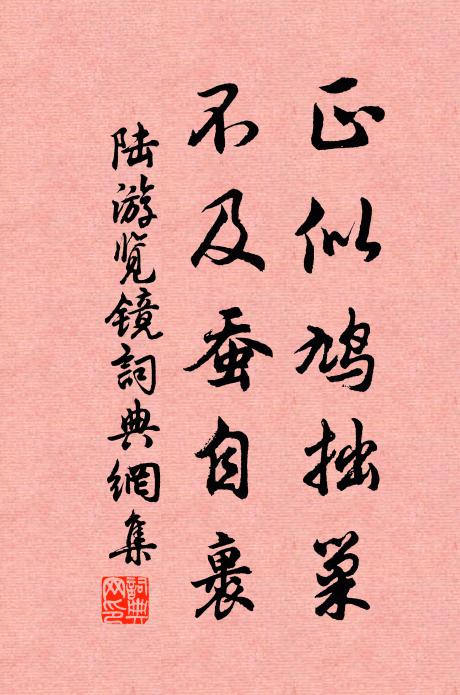 正似鸠拙巢
不及蚕自裹
陆游览镜詞典網集
詞典网印